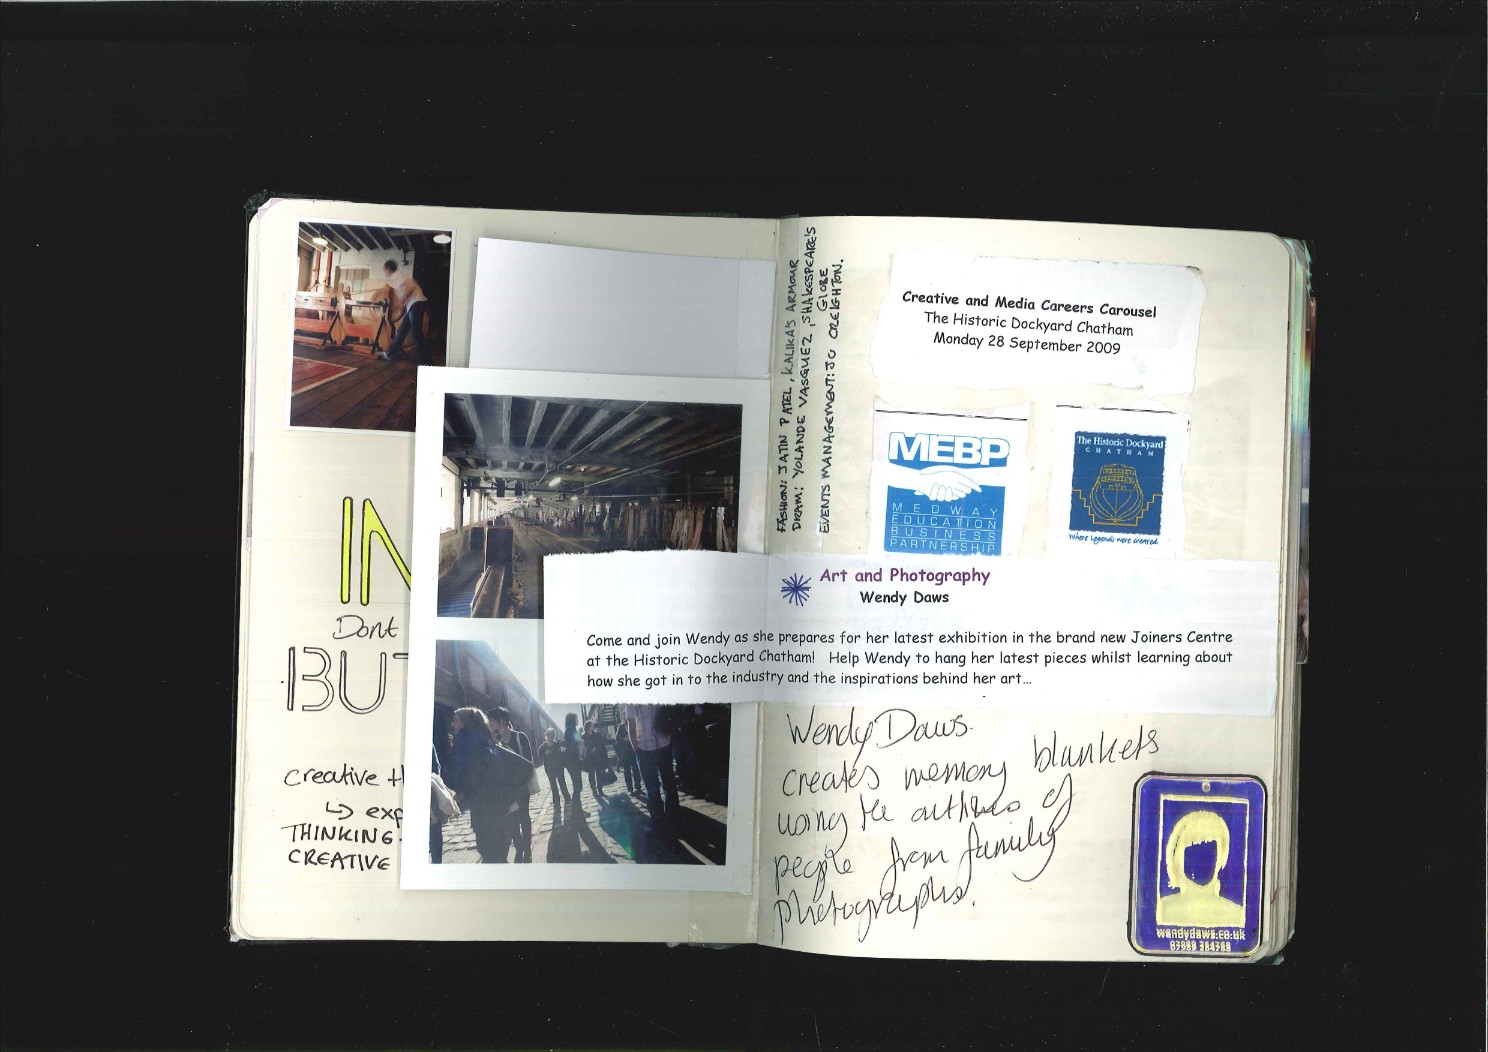 IN
Dont
BUT
creative th
↳ exp
THINKING
CREATIVE
FASHION: JATIN PATEL, KALIKA'S ARMOUR
DRAM: YOLANDE VASQUEZ, SHAKESPEARE'S
GLOBE
EVENTS MANAGEMENT: JO CREIGHTON.
Creative and Media Careers Carousel
The Historic Dockyard Chatham
Monday 28 September 2009
MEBP
MEDWAY
EDUCATION
BUSINESS
PARTNERSHIP
The Historic Dockyard
CHATHAM
Where Legends were created
Art and Photography
Wendy Daws
Come and join Wendy as she prepares for her latest exhibition in the brand new Joiners Centre
at the Historic Dockyard Chatham! Help Wendy to hang her latest pieces whilst learning about
how she got in to the industry and the inspirations behind her art…
Wendy Daws.
creates memory blankets
using the outlines of
people from family
photographs.
wendydaws.co.uk